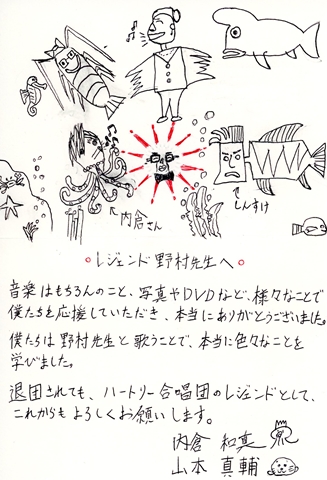 内倉さん
しんすけ
レジェンド野村先生へ
音楽はもちろんのこと、写真やDVDなど、様々なことで
僕たちを応援していただき、本当にありがとうございました。
僕たちは野村先生と歌うことで、本当に色々なことを
学びました。
退団されても、ハートリー合唱団のレジェンドとして、
これからもよろしくお願いします。
内倉 和真
山本 真輔